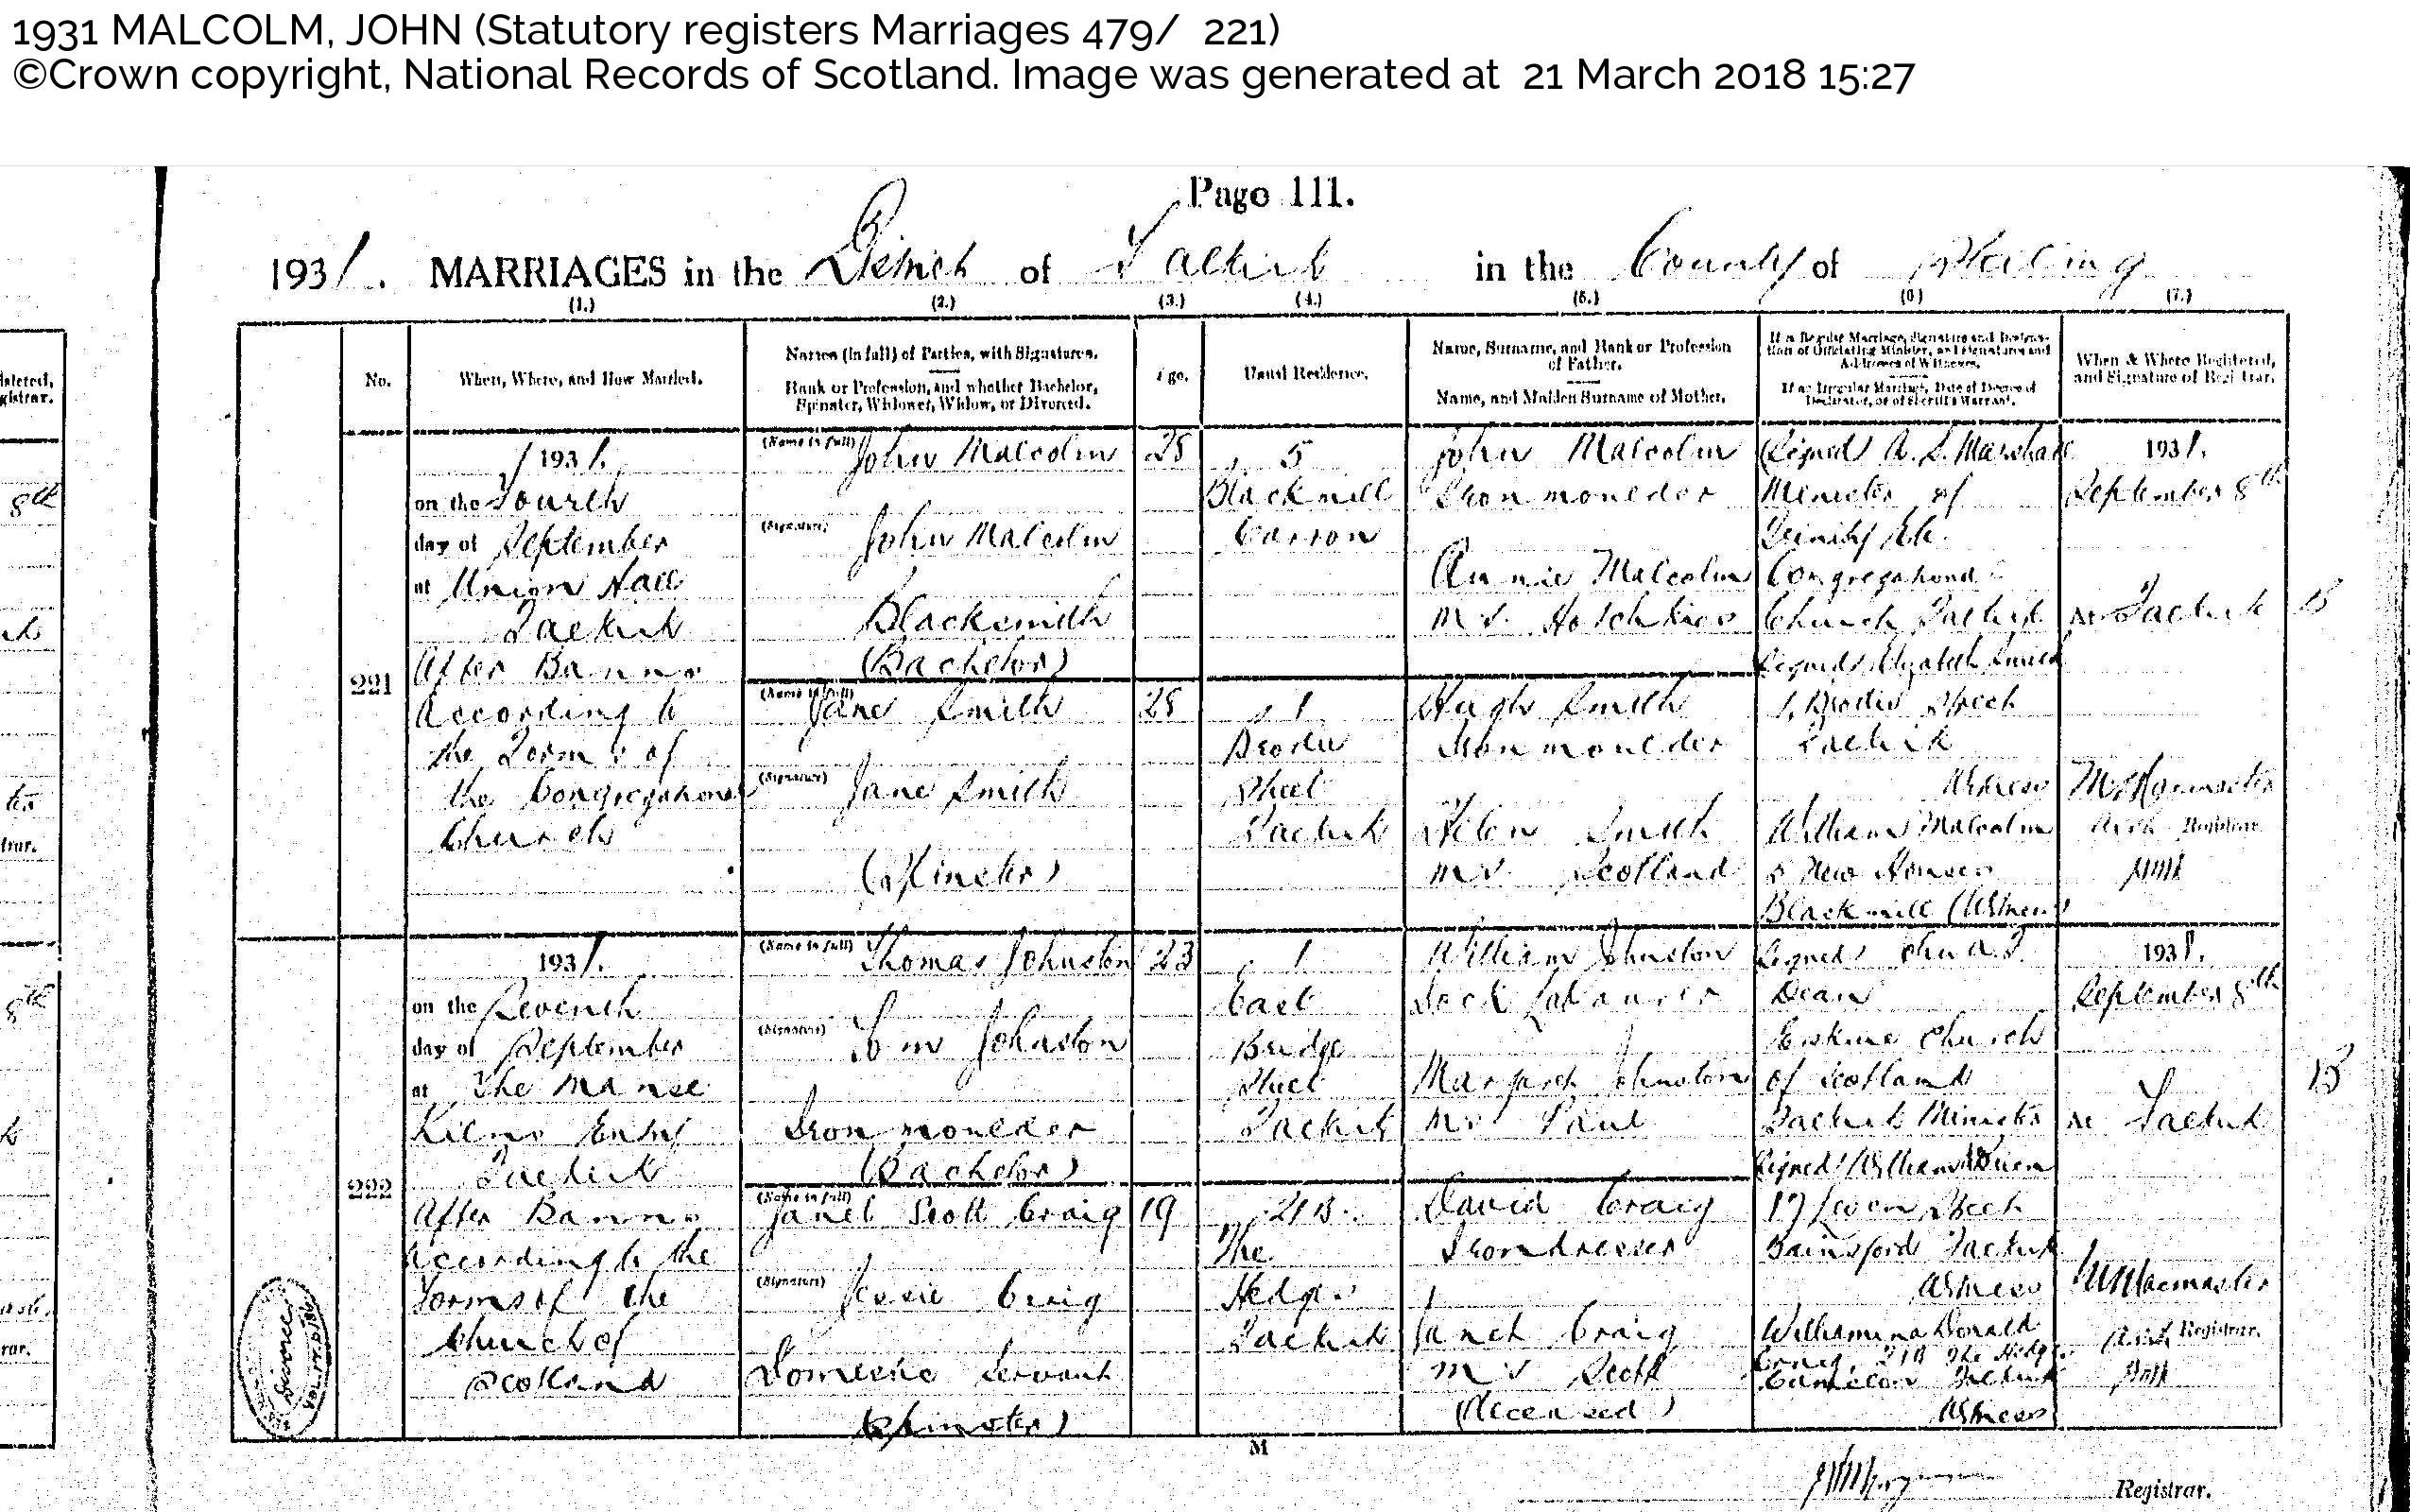 1931 MALCOLM, JOHN (Statutory registers Marriages 479/ 221)
©Crown copyright, National Records of Scotland. Image was generated at 21 March 2018 15:27
Page 111.
1931. MARRIAGES in the District of Falkirk in the County of Stirling
(1.) (2.) (3.) (4.) (5.) (6) (7.)
No.
When, Where, and How Married.
Names (in full) of Parties, with Signatures.
Rank or Profession, and whether Bachelor,
Spinster, Widower, Widow, or Divorced.
Age.
Usual Residence.
Name, Surname, and Rank or Profession
of Father.
Name, and Maiden Surname of Mother.
If a Regular Marriage, Signature and Designa-
tion of Officiating Minister, and Signatures and
Addresses of Witnesses.
If an Irregular Marriage, Date of Decree of
Declarator, or of Sheriff's Warrant.
When & Where Registered,
and Signature of Registrar.
221
1931.
on the Fourth
day of September
at Union Hall
Falkirk
After Banns
According to
the Forms of
the Congregational
Church
(Name in full) John Malcolm
(Signature) John Malcolm
Blacksmith
(Bachelor)
28
5
Blackmill
Carron
John Malcolm
Iron moulder
Annie Malcolm
M.S. Hotchkies
(Signed) A. S. Marshall
Minister of
Trinity
Congregational
Church Falkirk
(Signed) Elizabeth Smith
1, Brodie Street
Falkirk
Witness
William Malcolm
5 New Houses
Blackmill (Witness)
1931.
September 8th
At Falkirk
Asst. Registrar
(Name in full) Jane Smith
(Signature) Jane Smith
(Spinster)
28
1
Brodie
Street
Falkirk
Hugh Smith
Iron moulder
Helen Smith
M.S. Scotland
222
1931.
on the Seventh
day of September
at The Manse
Kilns Entry
Falkirk
After Banns
According to the
Forms of the
Church of
Scotland
(Name in full) Thomas Johnston
(Signature) Tom Johnston
Iron moulder
(Bachelor)
23
1
East
Bridge
Street
Falkirk
William Johnston
Dock Labourer
Margaret Johnston
M.S. Paul
(Signed)
Dean
Erskine Church
of Scotland
Falkirk Minister
(Signed) William
17 Leven Street
Bainsford Falkirk
Witness
Williamina Donald
Craig, 21B The Hedges
Camelon Falkirk
Witness
1931.
September 8th
At Falkirk
W Macmaster
Asst. Registrar.
(Name in full) Janet Scott Craig
(Signature) Jessie Craig
Domestic Servant
(Spinster)
19
21B.
The
Hedges
Falkirk
David Craig
Irondresser
Janet Craig
M.S. Scott
(Deceased)
Divorce
M
Registrar.